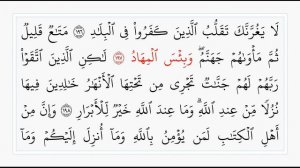 لَا يَغُرَّنَّكَ تَقَلُّبُ ٱلَّذِينَ كَفَرُوا۟ فِى ٱلْبِلَـٰدِ ١٩٦ مَتَـٰعٌ قَلِيلٌ
ثُمَّ مَأْوَىٰهُمْ جَهَنَّمُ ۚ وَبِئْسَ ٱلْمِهَادُ ١٩٧ لَـٰكِنِ ٱلَّذِينَ ٱتَّقَوْا۟
رَبَّهُمْ لَهُمْ جَنَّـٰتٌ تَجْرِى مِن تَحْتِهَا ٱلْأَنْهَـٰرُ خَـٰلِدِينَ فِيهَا
نُزُلًا مِّنْ عِندِ ٱللَّهِ ۗ وَمَا عِندَ ٱللَّهِ خَيْرٌ لِّلْأَبْرَارِ ١٩٨ وَإِنَّ مِنْ
أَهْلِ ٱلْكِتَـٰبِ لَمَن يُؤْمِنُ بِٱللَّهِ وَمَآ أُنزِلَ إِلَيْكُمْ وَمَآ